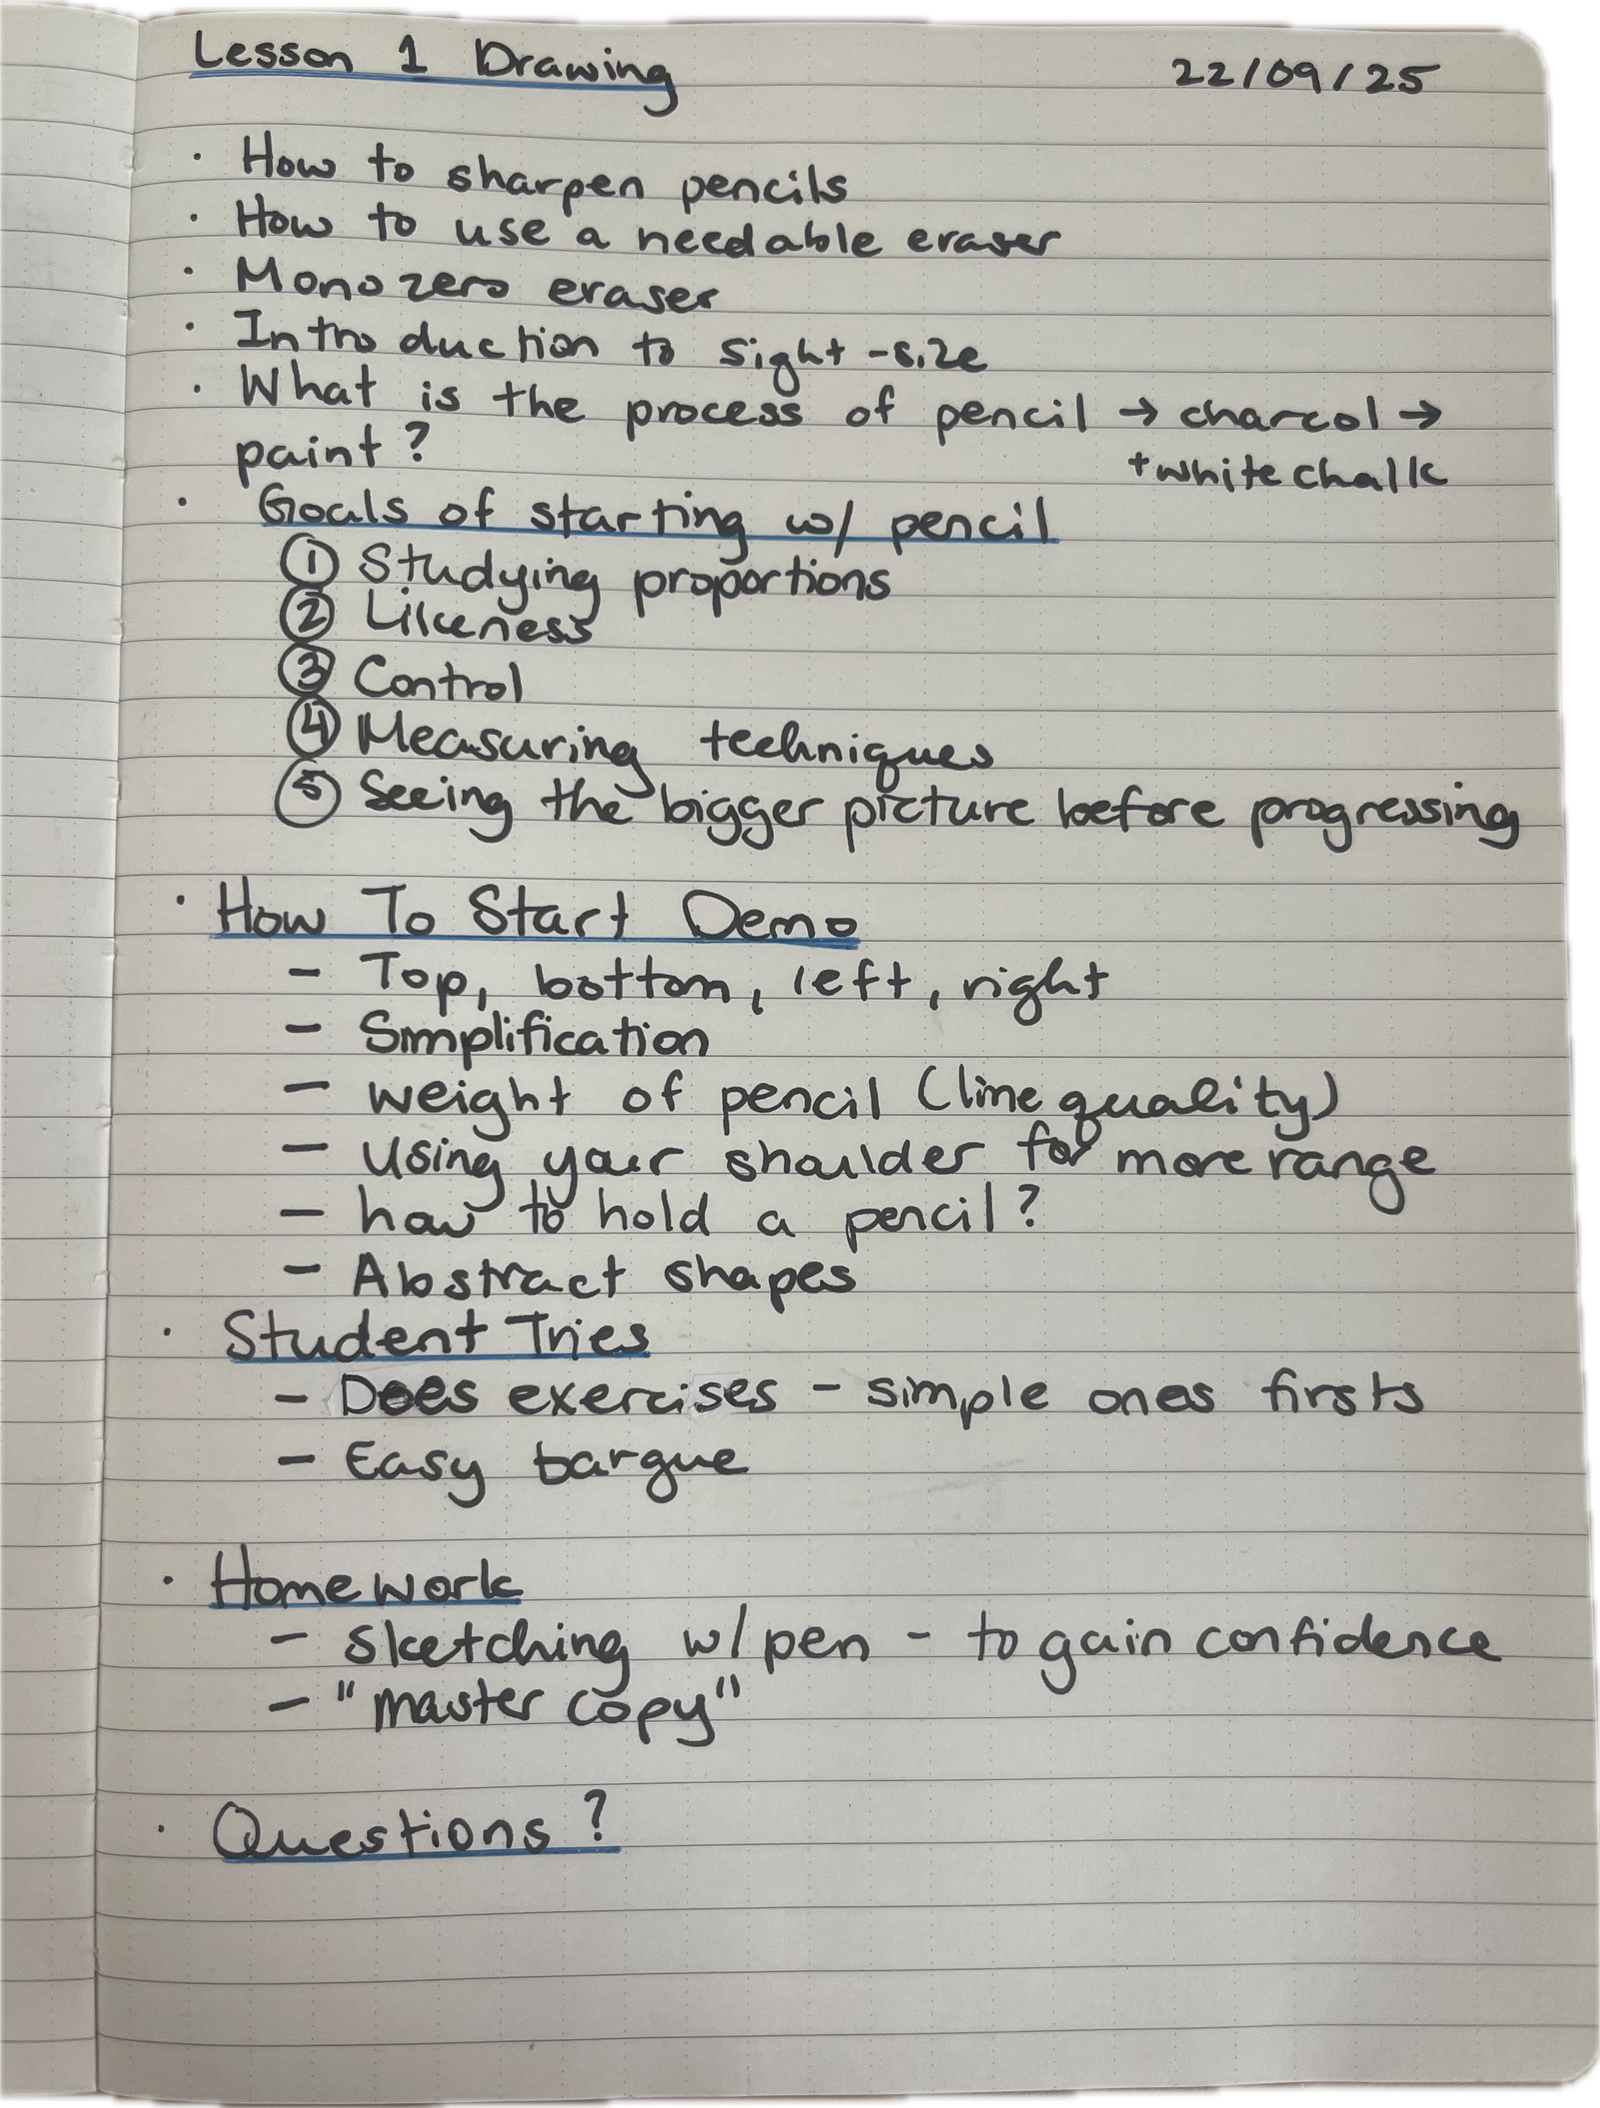 Lesson 1 Drawing 22/09/25
· How to sharpen pencils
· How to use a needable eraser
· Mono zero eraser
· Introduction to sight-size
· What is the process of pencil → charcol →
paint? + white chalk
· Goals of starting w/ pencil
① Studying proportions
② Likeness
③ Control
④ Measuring techniques
⑤ Seeing the bigger picture before progressing
· How To Start Demo
- Top, bottom, left, right
- Simplification
- weight of pencil (line quality)
- Using your shoulder for more range
- how to hold a pencil?
- Abstract shapes
· Student Tries
- Does exercises - simple ones firsts
- Easy bargue
· Homework
- sketching w/ pen - to gain confidence
- "master copy"
· Questions?